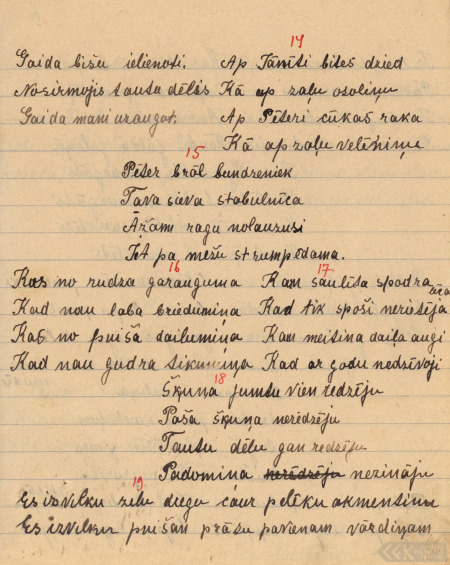 Gaida bišu ielienoti.
Nosirmojis tautu dēlis
Gaida mani uzaugot.
14
Ap Tānīti bites dzied
Kā ap zaļu osoliņu
Ap Pēteri cūkas raka
Kā ap zaļu velēniņu
15
Pēter brāl bundzeniek
Tava sieva stabulnīca
Āžam ragu nolauzusi
Tet pa mežu strumpēdama.
16
Kas no rudza garauguma
Kad nau laba briedumiņa
Kas no puiša dailumiņa
Kad nau gudra tikumiņa
17
Kam saulīta spodra lēca
Kad tik spoši neritēja
Kam meitiņa daiļa augi
Kad ar godu nedzīvoji
18
Šķuņa jumtu vien redzēju
Paša šķuņa neredzēju
Tautu dēlu gan redzēju
Padomiņa neredzēju nezināju
19
Es izvilku zilu diegu caur pelēku akmentiņu
Es izvilku puišam prātu pavānam vārdiņam